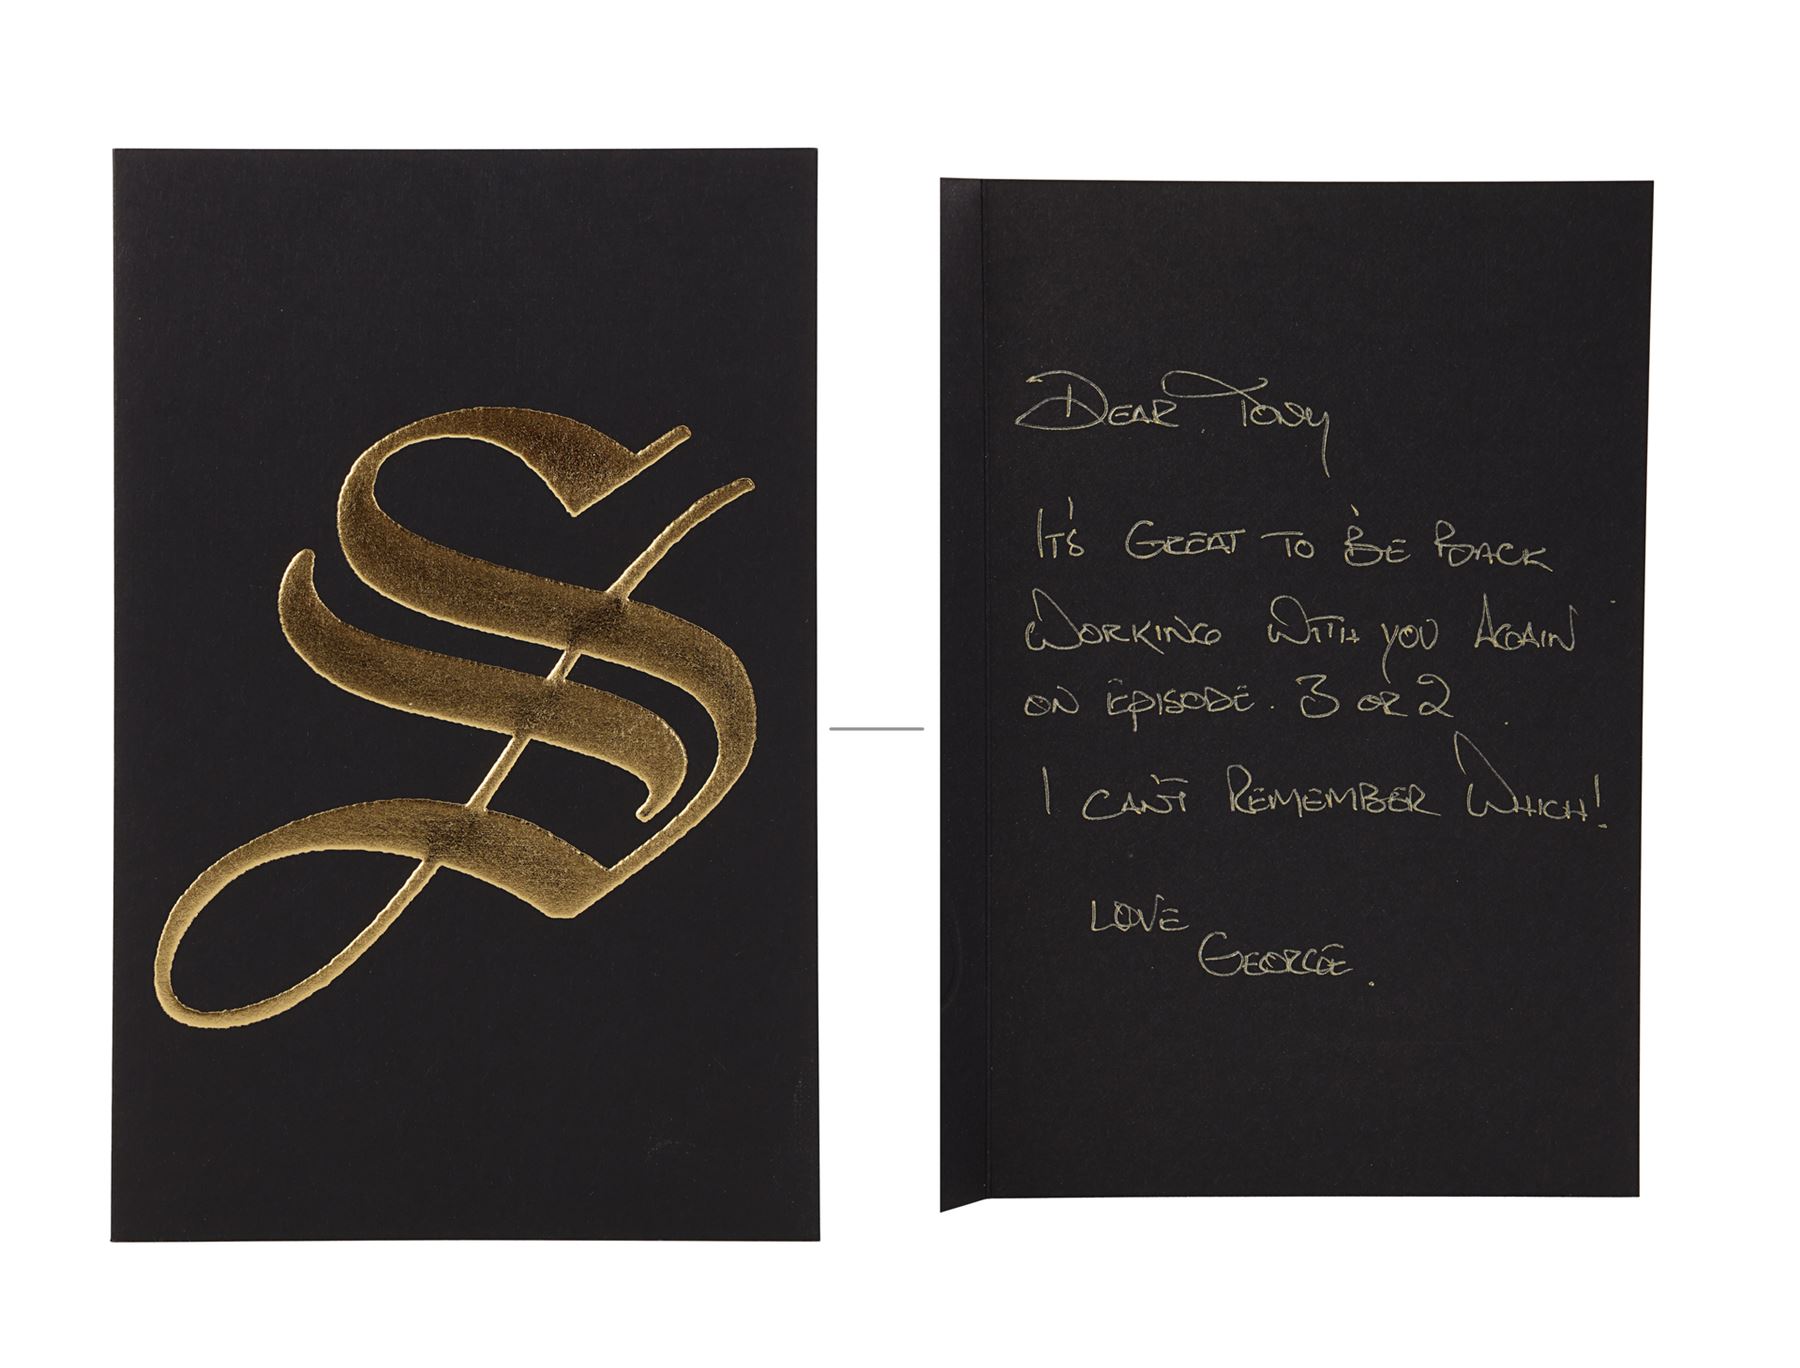 S
Dear Tony
It's great to be back
working with you again
on episode 3 or 2
I can't remember which!
Love
George.